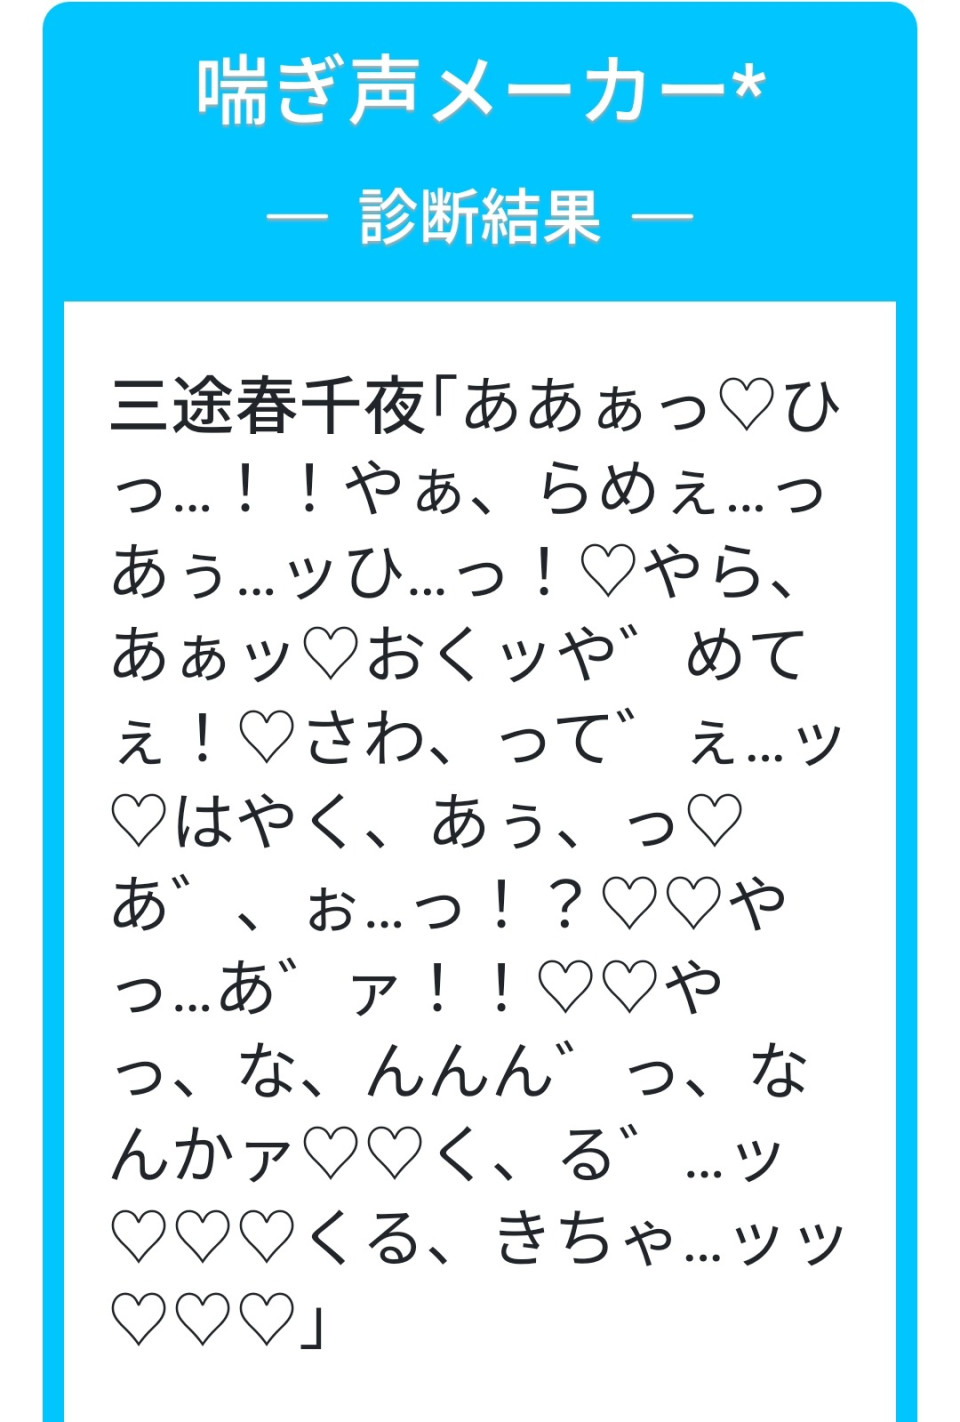 喘ぎ声メーカー*
― 診断結果 ―
三途春千夜「ああぁっ♡ひ
っ…！！やぁ、らめぇ…っ
あぅ…ッひ…っ！♡やら、
あぁッ♡おくッや゛めて
ぇ！♡さわ、って゛ぇ…ッ
♡はやく、あぅ、っ♡
あ゛、ぉ…っ！？♡♡や
っ…あ゛ァ！！♡♡や
っ、な、んんん゛っ、な
んかァ♡♡く、る゛…ッ
♡♡♡くる、きちゃ…ッッ
♡♡♡」